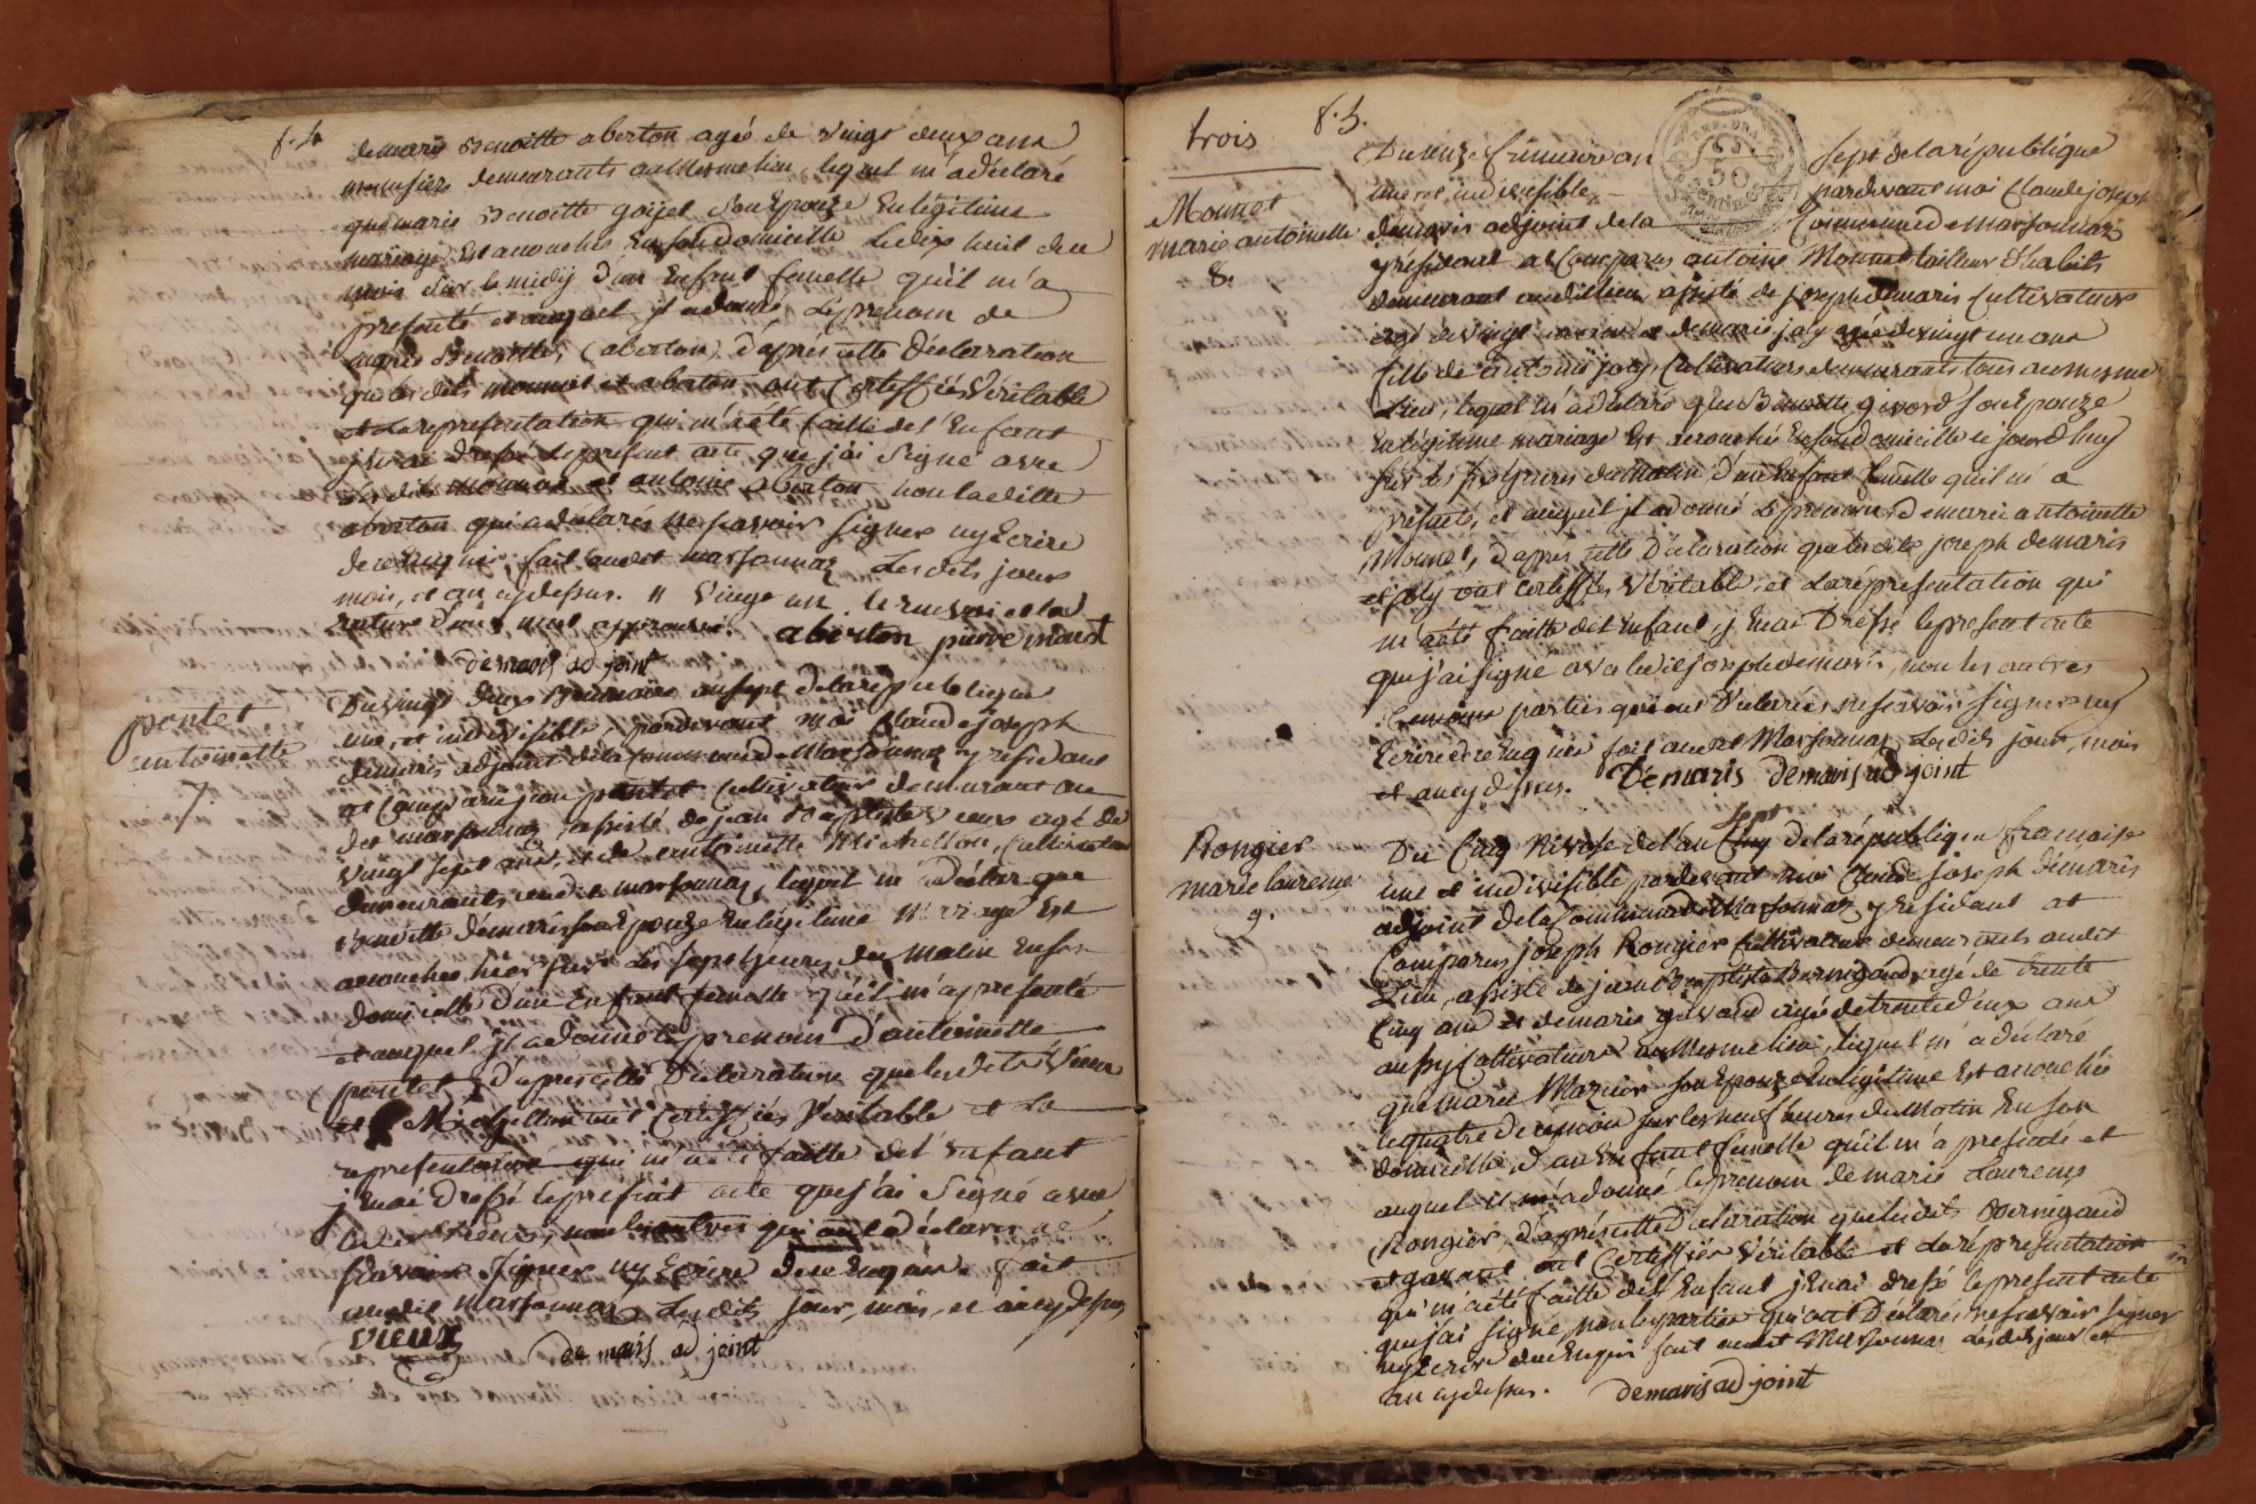 f. 4
demarie Benoitte aberton agée de vingt deux ans
demeurants au mesme lieu, lequel m'a déclaré
que marie Benoitte goyet son Epouze En légitime
mariage Est accouchée En son domicille Le dix huit du
mois sur le midy d'un Enfant femelle qu'il m'a
presenté et auquel jl a donné Le prenom de
marie Benoitte (aberton) d'après cette Déclaration
que les dits monnet et aberton ont Certiffiés Véritable
et la representation qui m'a été faitte del'Enfant
j'En ai dressé le présent acte que j'ai Signé avec
Les dits monnet et antoine aberton non la ditte
aberton qui a déclarés ne scavoir signer ny Ecrire
de ce Enquise fait audit marsonnaz Les dits jour
mois, et an cy dessus. " vingt un le renvoi et la
rature d'un mot approuvé. aberton pierre monet
demaris ad joint
pontet
antoinette
7
Du vingt deux Brumaire an sept de la république
une, et indivisible, pardevant moi Claude joseph
demaris adjoint de la Commune de Marsonnaz y résidant
at Comparu jean pontet Cultivateur demeurant au
dit marsonnaz, assisté de jean Baptiste vieux agé de
vingt sept ans, et de antoinette Michellon, Cultivateurs
demeurants audit marsonnaz, lequel m'a déclar que
Benoitte demaris son Epouze En légitime Mariage Est
accouchée hier sur Les sept heures du Matin En son
domicille d'un Enfant femelle qu'il m'a presenté
et auquel jl a donné le prenom d'antoinette
pontet, d'après cette Déclaration que les dits Vieux
et Michellon ont Certiffiés Véritable et La
representation qui m'a été faitte del'Enfant
j'En ai Dressé le présent acte que j'ai Signé avec
Ledit vieux, non les autres qui ont déclarés ne
scavoir Signer ny Ecrire de ce Enquis. fait
audit Marsonnaz Les dits jour, mois, et an cy dessus
vieux
demaris ad joint
trois
f. 5.
Monnet
marie antoinette
8.
Du onze frimaire an sept de la république
une et indivisible, pardevant moi Claude joseph
demaris adjoint de la Commune de Marsonnaz
y résidant at Comparus antoine Monnet tailleur d'habits
demeurant audit lieu, assisté de joseph demaris Cultivateur
agé de vingt et de marie joly agée de vingt un ans
fille de antoine joly Cultivateurs demeurants tous au mesme
Lieu, lequel m'a déclaré que Benoitte gavard son Epouze
En légitime mariage Est accouchée En son domicille ce jourd'huy
sur les six heures du Matin d'un Enfant femelle qu'il m'a
présenté, et auquel jl a donné Le prenom de marie antoinette
Monnet, d'après cette Déclaration que les dits joseph demaris
et joly ont certiffiés Véritable, et La répresentation qui
m'a été faitte del'Enfant j'En ai Dressé le present acte
que j'ai signé avec ledit joseph demaris, non les autres
parties qui ont Déclarées ne scavoir signer ny
Ecrire de ce Enquis fait audit Marsonnaz Les dits jour, mois
et an cy dessus. Demaris demaris ad joint
Rongier
marie laurence
9.
sept
Du Cinq Nivose de l'an Cinq de la république francaise
une et indivisible pardevant moi Claude joseph démaris
adjoint de la Commune de Marsonnaz y residant at
Comparus joseph Rongier Cultivateur demeurants audit
Lieu, assisté de jean Baptiste Bernigaud agé de trente
Cinq ans et de marie gavand agée de trente deux ans
aussy Cultivateurs au Mesme lieu, lequel m'a déclaré
que marie Mazuir son Epouze En légitime Est accouchée
le quatre de ce mois sur les neuf heures du Matin En son
domicille d'un Enfant femelle qu'il m'a presenté et
auquel il m'a donné le prenom de marie Laurence
Rongier, d'après cette Déclaration que les dits Bernigaud
et gavant ont Certiffiés Véritable et La répresentation
qui m'a été faitte del'Enfant j'En ai dressé le present acte
que j'ai signé, non les parties qui ont Déclaré ne scavoir signer
ny Ecrire de ce Enquis fait audit Marsonnaz Les dits jour et
an cy dessus. demaris ad joint